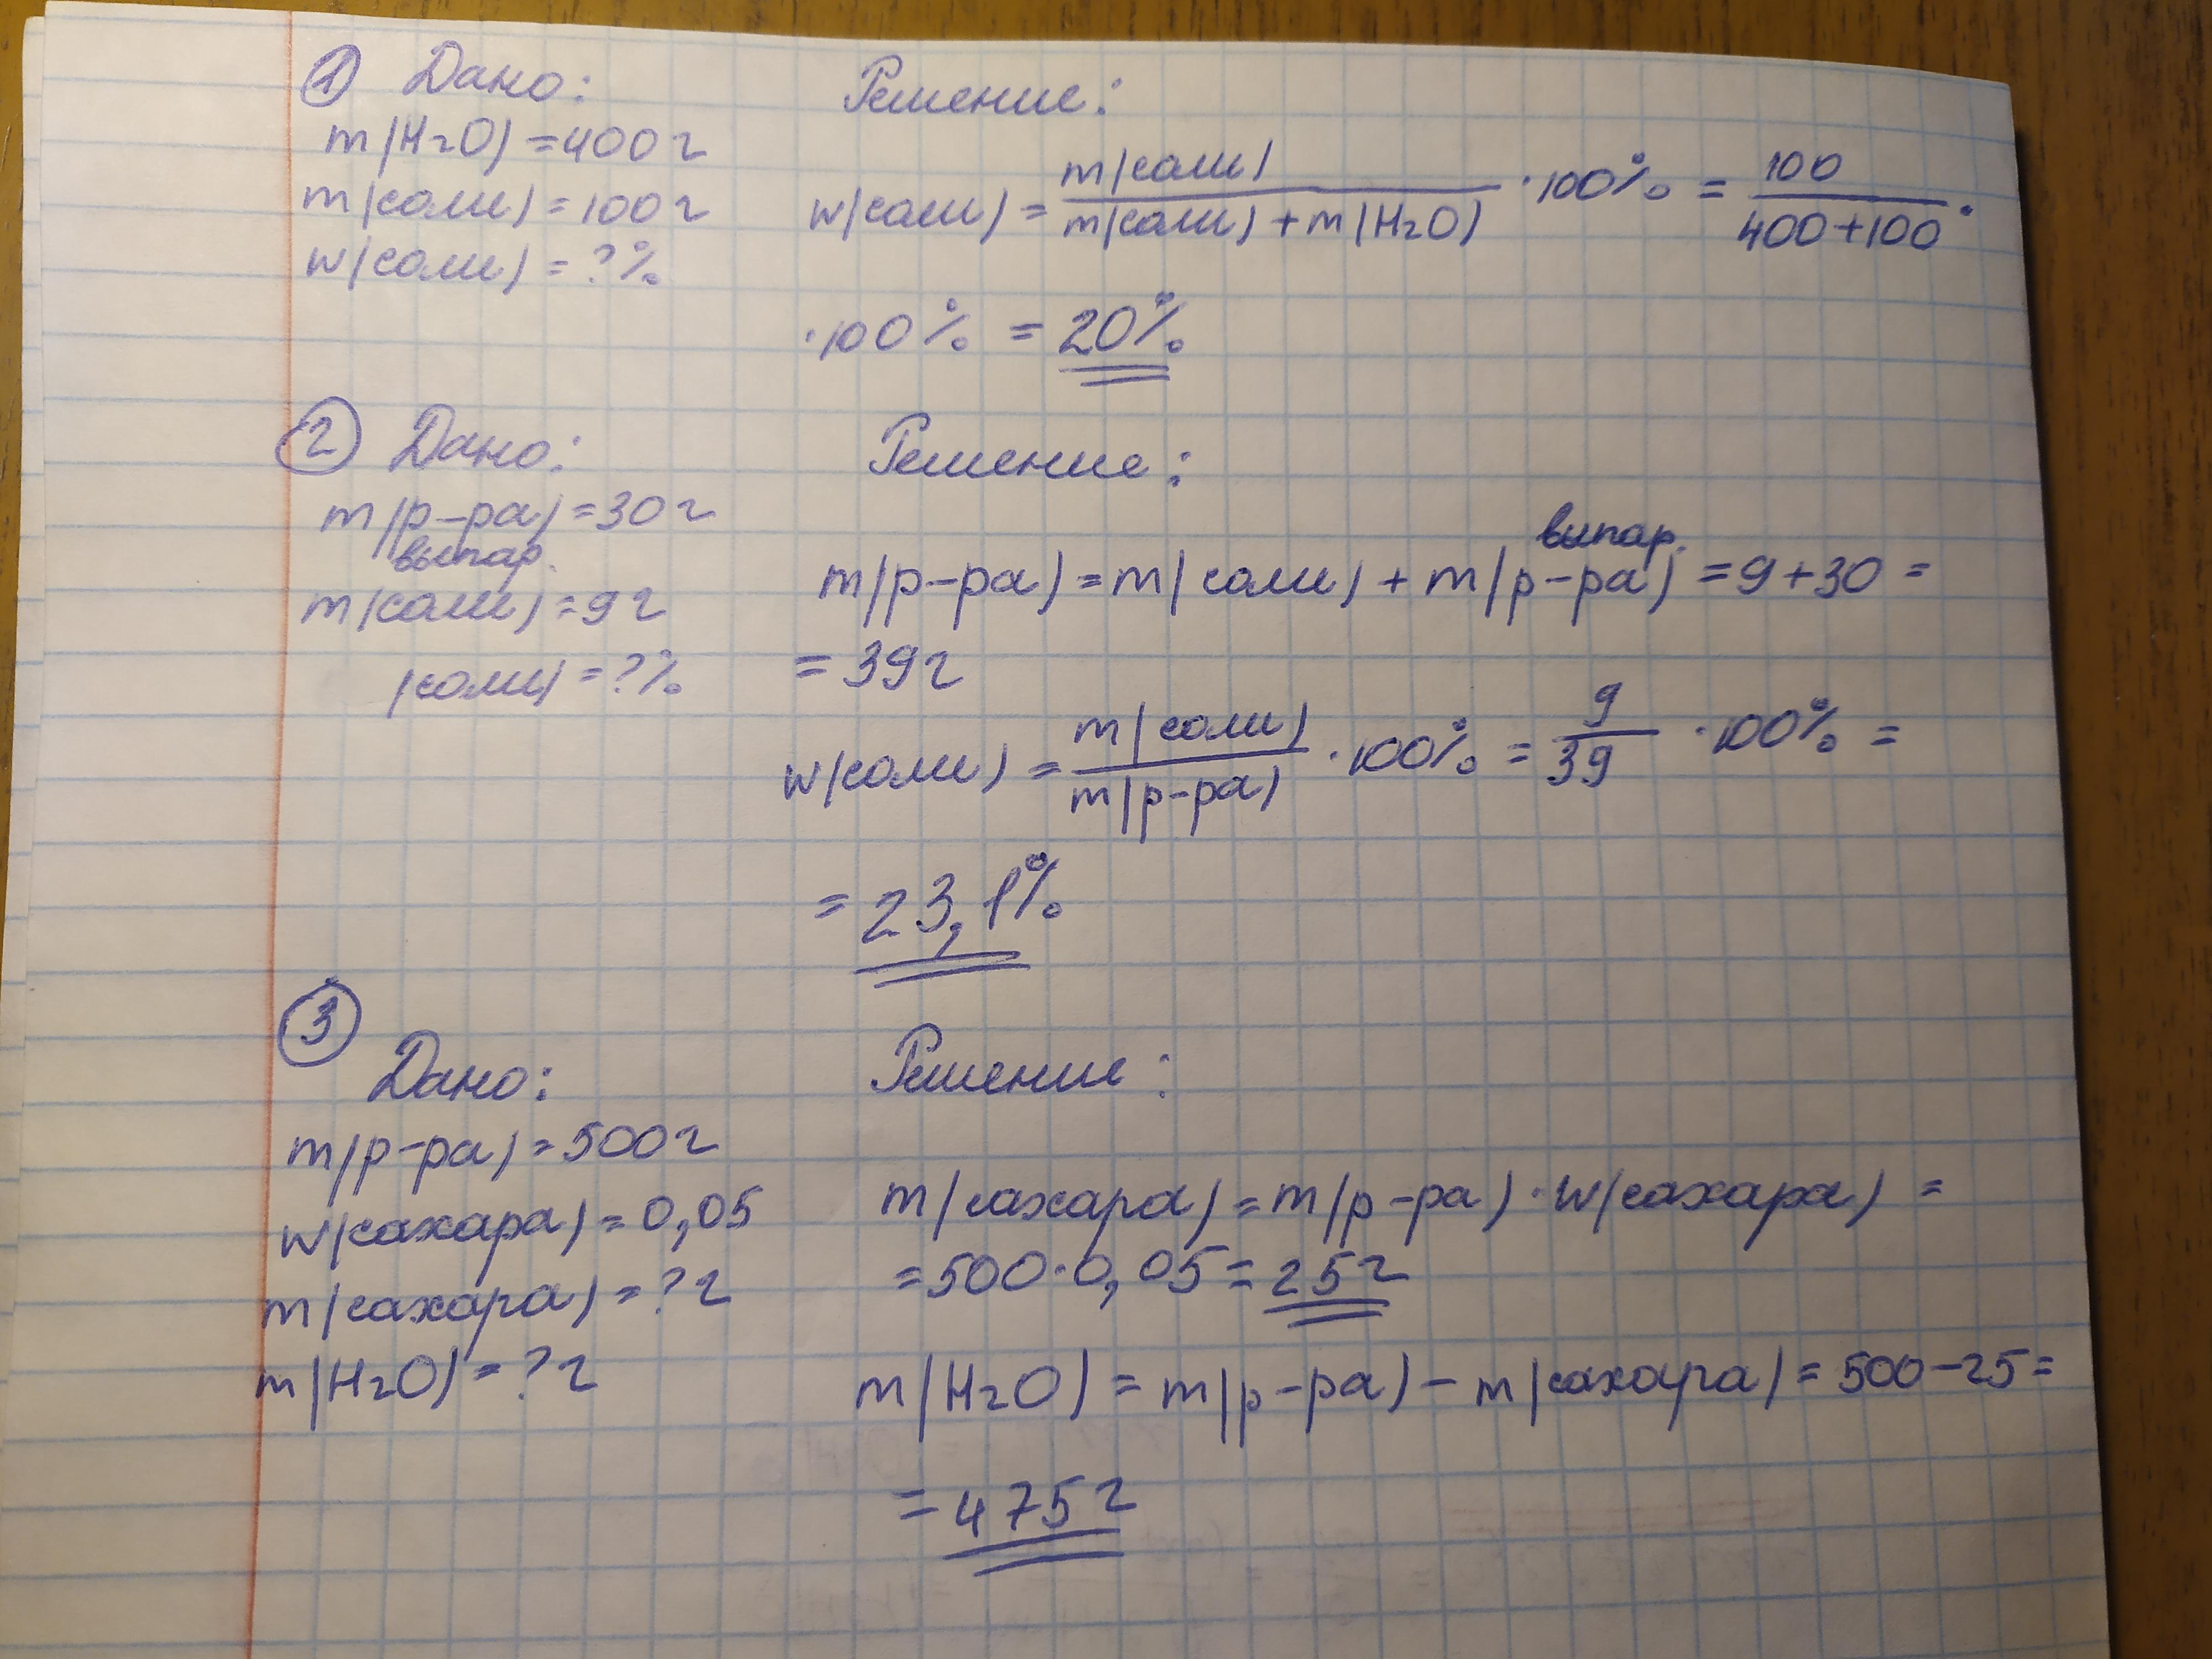 ① Дано: Решение:
m(H2O) = 400 г
m(соли) = 100 г
w(соли) = ?%
w(соли) = m(соли) / m(соли) + m(H2O) · 100% = 100 / 400 + 100 ·
· 100% = 20%
② Дано: Решение:
m(р-ра) = 30 г
выпар.
m(соли) = 9 г
(соли) = ?%
выпар.
m(р-ра) = m(соли) + m(р-ра) = 9 + 30 =
= 39 г
w(соли) = m(соли) / m(р-ра) · 100% = 9 / 39 · 100% =
= 23,1%
③
Дано: Решение:
m(р-ра) = 500 г
w(сахара) = 0,05
m(сахара) = ? г
m(H2O) = ? г
m(сахара) = m(р-ра) · w(сахара) =
= 500 · 0,05 = 25 г
m(H2O) = m(р-ра) – m(сахара) = 500 – 25 =
= 475 г